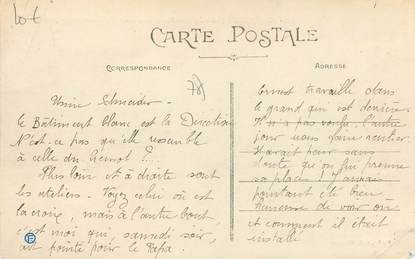 lot
CARTE POSTALE
CORRESPONDANCE
ADRESSE
78)
Usine Schneider -
Le Bâtiment blanc est la Direction
N'est-ce pas qu'elle ressemble
à celle du Creusot ?...
Plus loin et à droite sont
les ateliers. Voyez celui où est
la croix, mais à l'autre bout,
c'est moi qui, samedi soir,
ai pointé pour le Papa
Ernest travaille dans
le grand qui est derrière
Il n'a pas voulu l'autre
pour nous faire rentrer
Il avait peur sans
doute qu'on lui prenne
sa place ! J'aurais
pourtant été bien
heureuse de voir où
et comment il était
installé